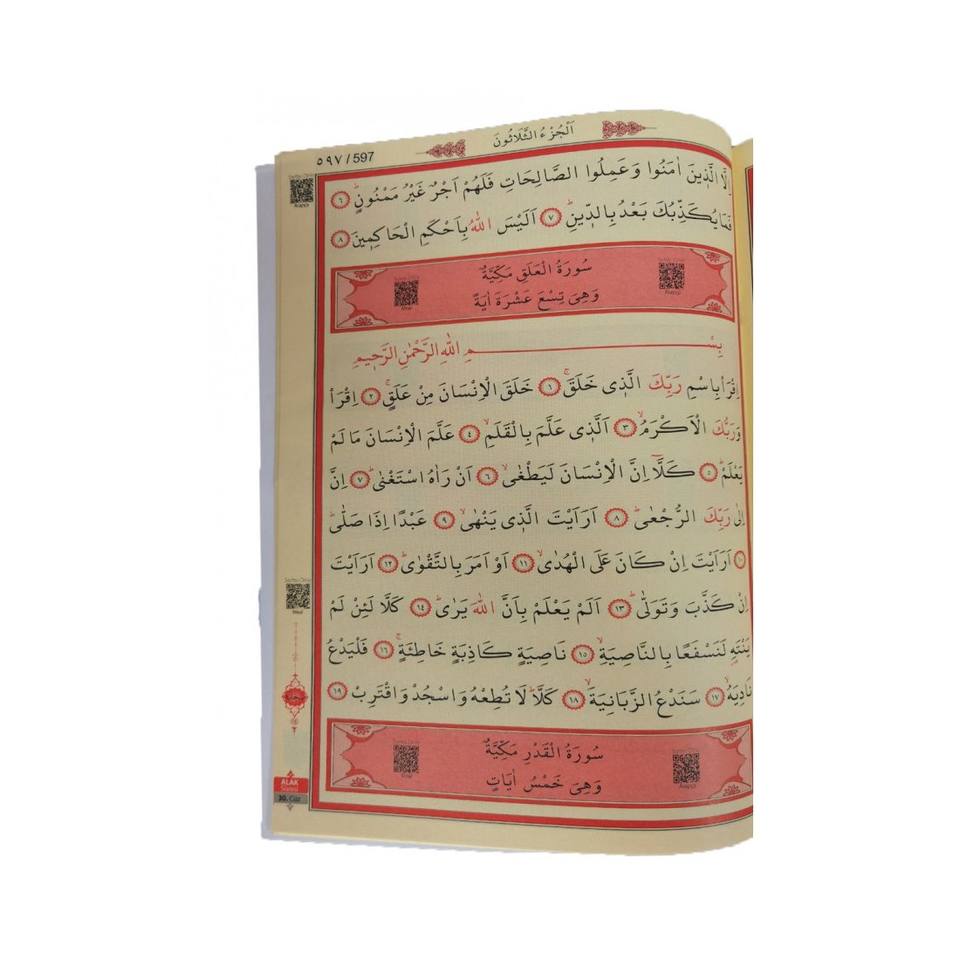 ٥٩٧/597 اَلْجُزْءُ الثَّلَاثُونَ
اِلَّا الَّذ۪ينَ اٰمَنُوا وَعَمِلُوا الصَّالِحَاتِ فَلَهُمْ اَجْرٌ غَيْرُ مَمْنُونٍۜ ٦
فَمَا يُكَذِّبُكَ بَعْدُ بِالدّ۪ينِۜ ٧ اَلَيْسَ اللّٰهُ بِاَحْكَمِ الْحَاكِم۪ينَ ٨
سُورَةُ الْعَلَقِ مَكِّيَّةٌ
وَهِىَ تِسْعَ عَشْرَةَ اٰيَةً
بِسْمِ اللّٰهِ الرَّحْمٰنِ الرَّح۪يمِ
اِقْرَأْ بِاسْمِ رَبِّكَ الَّذ۪ى خَلَقَۚ ١ خَلَقَ الْاِنْسَانَ مِنْ عَلَقٍۚ ٢ اِقْرَأْ
وَرَبُّكَ الْاَكْرَمُۙ ٣ اَلَّذ۪ى عَلَّمَ بِالْقَلَمِۙ ٤ عَلَّمَ الْاِنْسَانَ مَا لَمْ
يَعْلَمْۜ ٥ كَلَّٓا اِنَّ الْاِنْسَانَ لَيَطْغٰىۙ ٦ اَنْ رَاٰهُ اسْتَغْنٰىۜ ٧ اِنَّ
اِلٰى رَبِّكَ الرُّجْعٰىۜ ٨ اَرَاَيْتَ الَّذ۪ى يَنْهٰىۙ ٩ عَبْدًا اِذَا صَلّٰىۜ
١٠ اَرَاَيْتَ اِنْ كَانَ عَلَى الْهُدٰىۙ ١١ اَوْ اَمَرَ بِالتَّقْوٰىۜ ١٢ اَرَاَيْتَ
اِنْ كَذَّبَ وَتَوَلّٰىۜ ١٣ اَلَمْ يَعْلَمْ بِاَنَّ اللّٰهَ يَرٰىۜ ١٤ كَلَّا لَئِنْ لَمْ
يَنْتَهِ لَنَسْفَعًا بِالنَّاصِيَةِۙ ١٥ نَاصِيَةٍ كَاذِبَةٍ خَاطِئَةٍۚ ١٦ فَلْيَدْعُ
نَادِيَهُۙ ١٧ سَنَدْعُ الزَّبَانِيَةَۙ ١٨ كَلَّاۜ لَا تُطِعْهُ وَاسْجُدْ وَاقْتَرِبْ ١٩
سُورَةُ الْقَدْرِ مَكِّيَّةٌ
وَهِىَ خَمْسُ اٰيَاتٍ
ALAK
Sûresi
30. Cüz